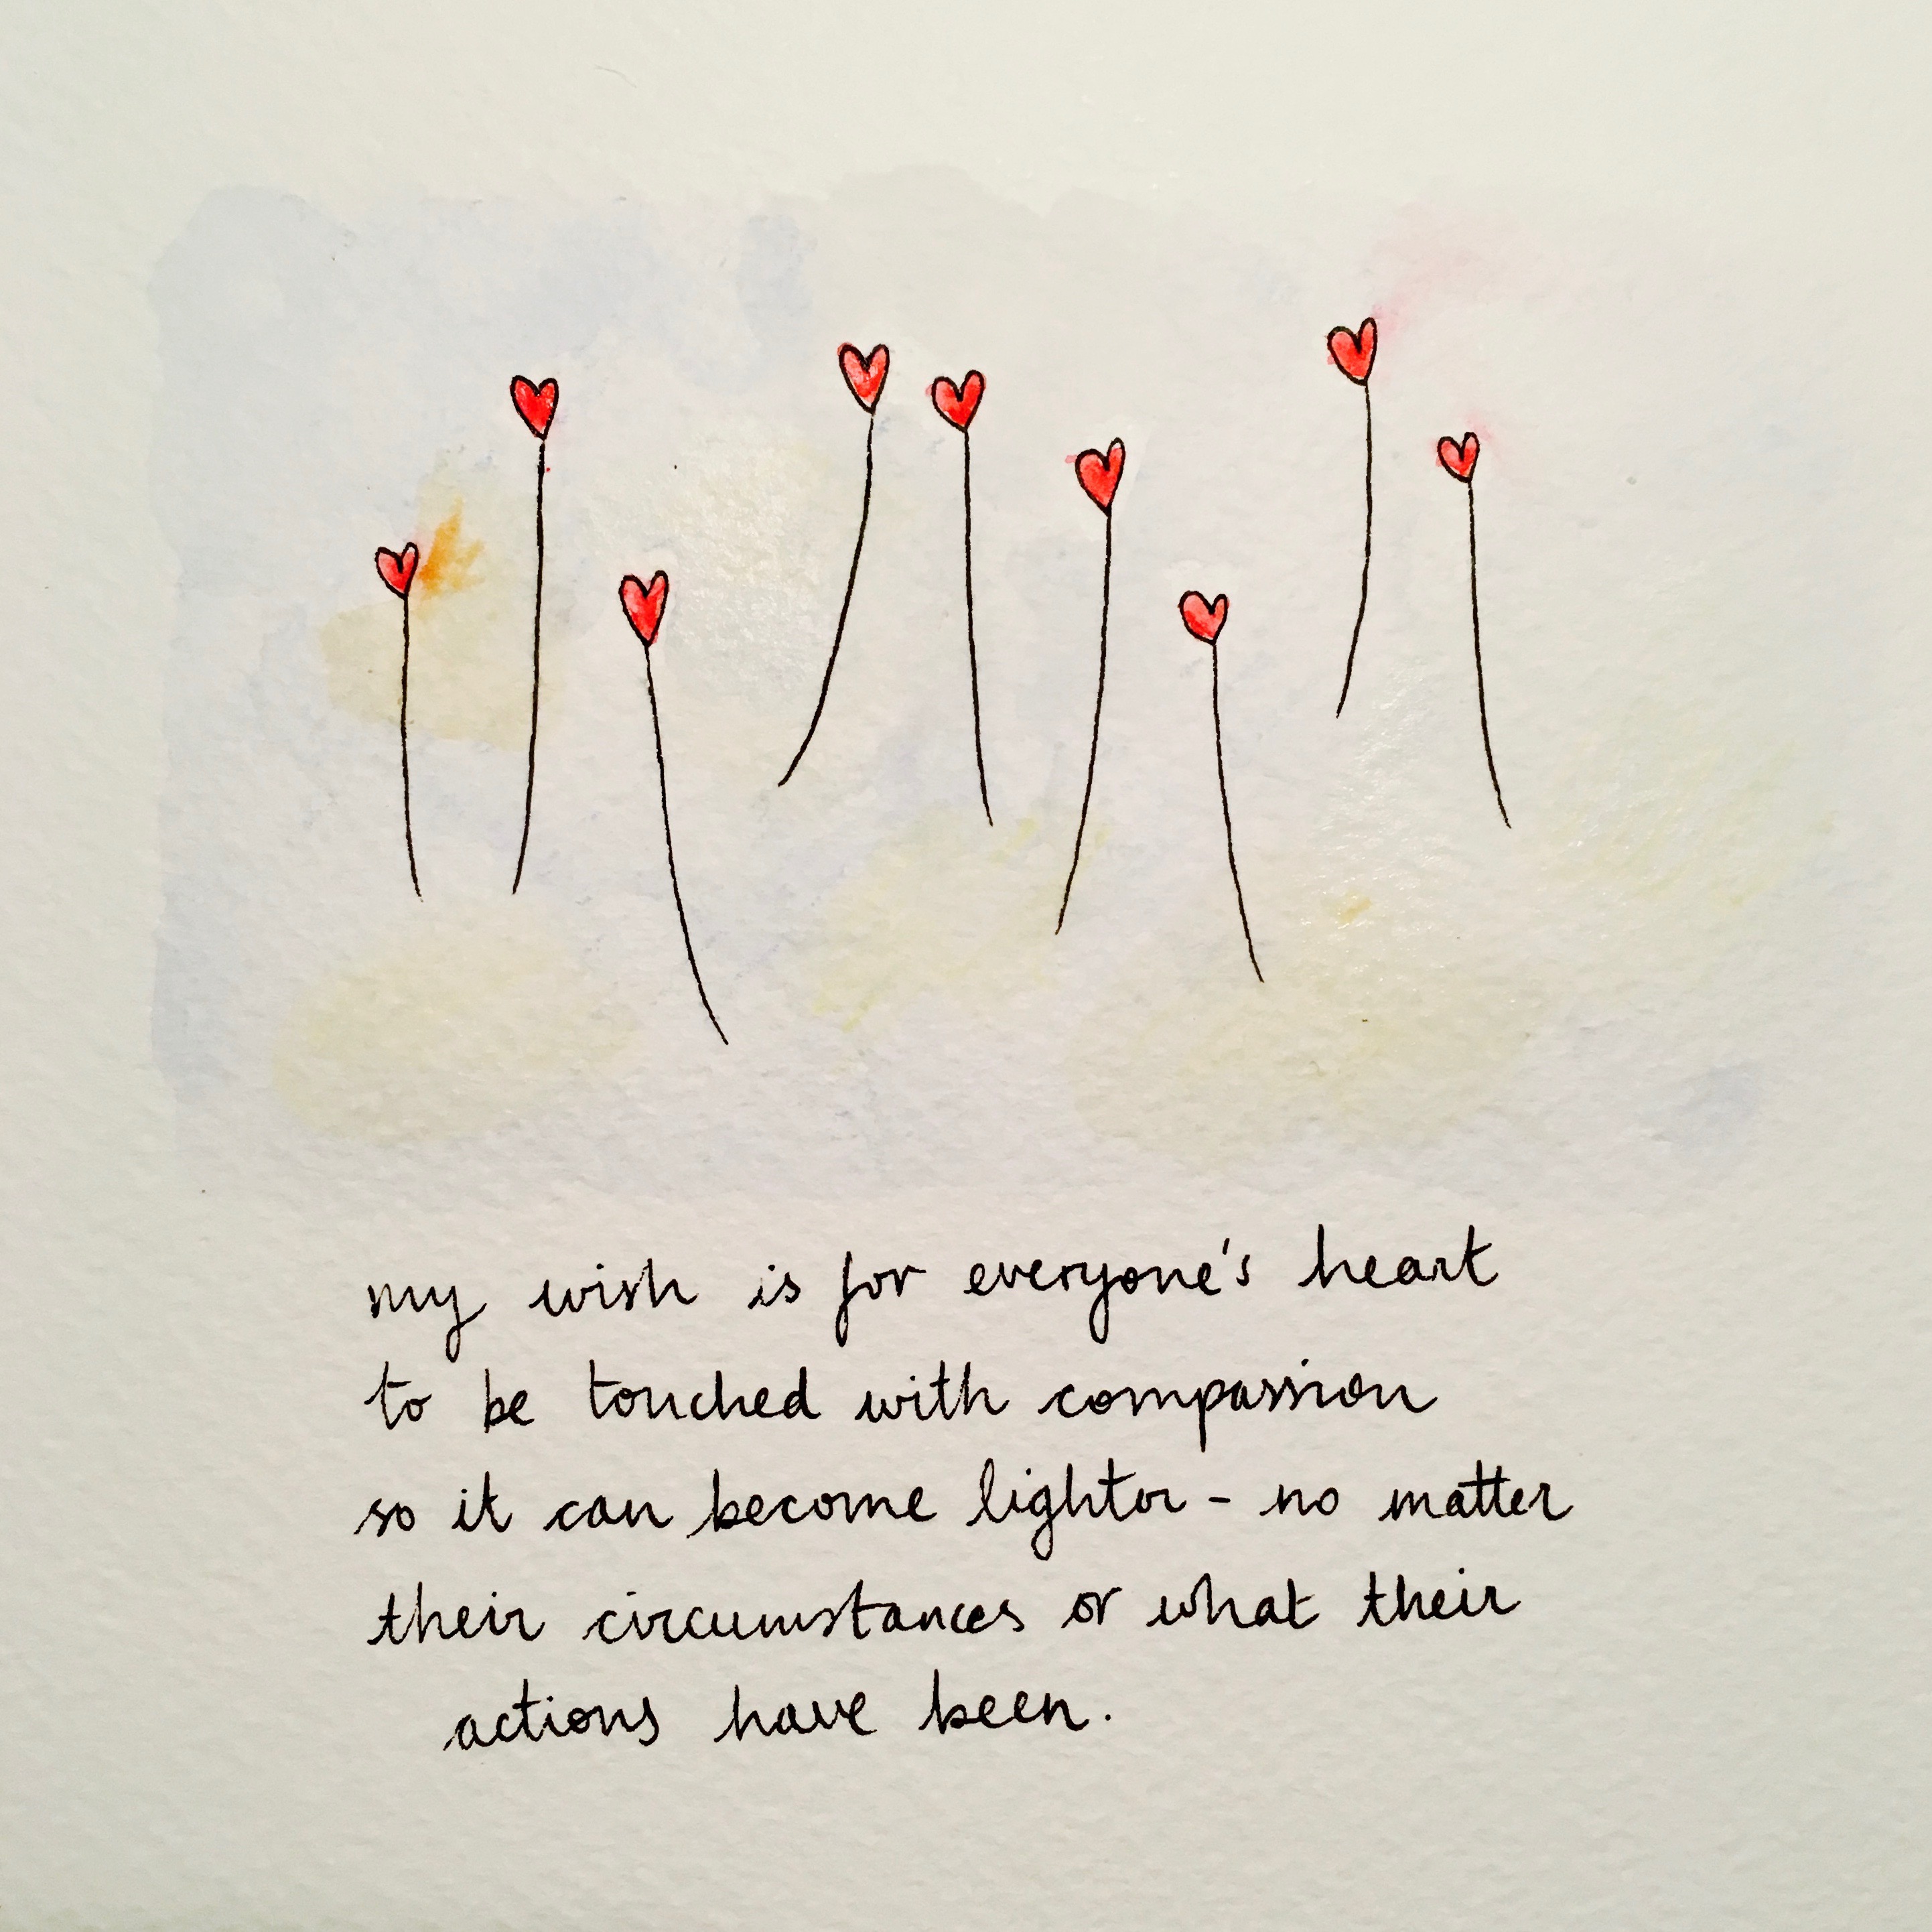 my wish is for everyone's heart
to be touched with compassion
so it can become lighter - no matter
their circumstances or what their
actions have been.